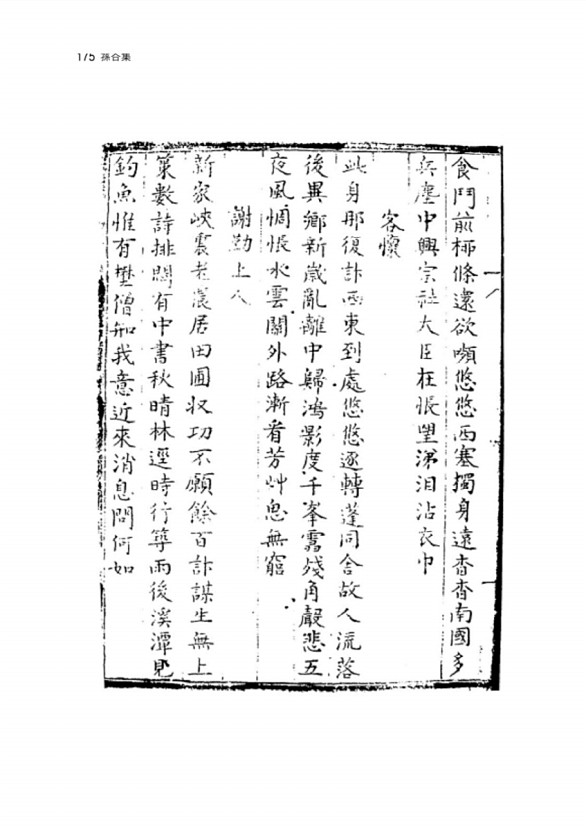 175 孫合集
食門前柳條遠欲嚬悠悠西塞獨身遠杳杳南國多
兵塵中興宗社大臣在悵望涕泪沾衣巾
客懷
此身那復計西東到處悠悠逐轉蓬同舍故人流落
後異鄉新歲亂離中歸鴻影度千峯雪殘角聲悲五
夜風惆悵水雲關外路漸看芳艸思無窮
謝勤上人
新家峽裏老農居田圃收功不願餘百計謀生無上
策數詩排悶有中書秋晴林逕時行筭雨後溪潭見
釣魚惟有僧知我意近來消息問何如